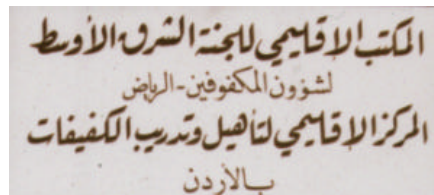 المكتب الاقليمي للجنة الشرق الأوسط
لشؤون المكفوفين - الرياض
المركز الاقليمي لتأهيل وتدريب الكفيفات
بالأردن